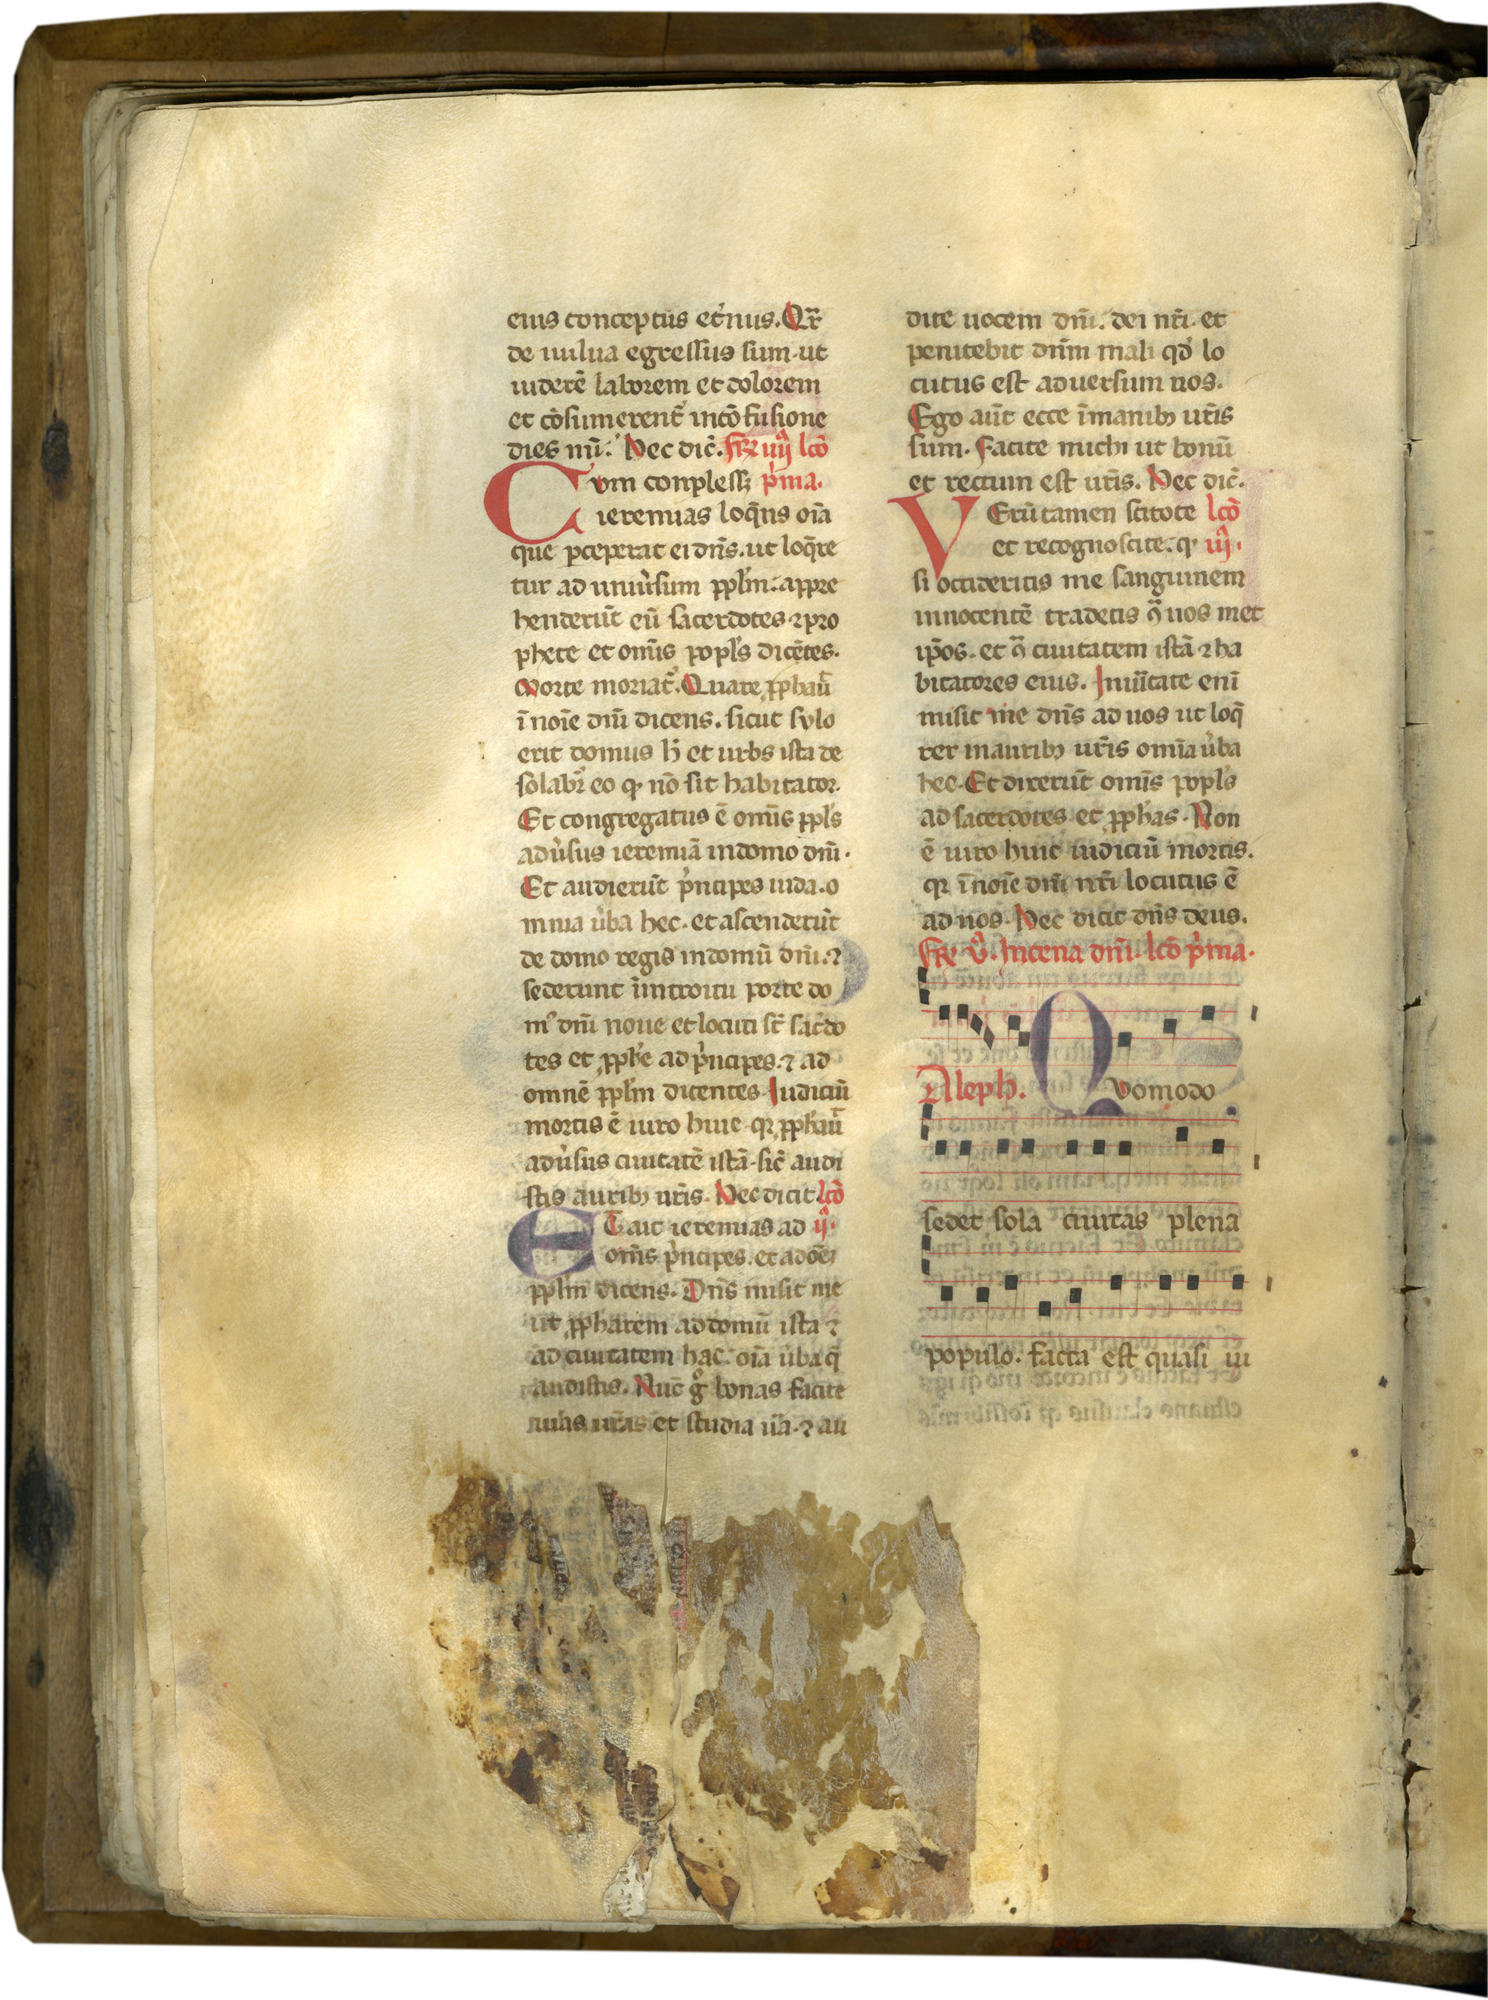 eius conceptus et̾nus. Qr̄
de uulua egressus sum. ut
uiderē laborem et dolorem
et cōsumerent̾ in cōfusione
dies mī. Nec dic̄. Fr̄e iiij lcō
Cum conplesset p̾ma.
ieremias loq̄ns oīa
que p̄ceperat ei dn̄s. ut loq̄re
tur ad uniu̾sum pp̄lm. appre
henderūt eū sacerdotes ⁊ pro
phete et omīs popl̄s dicētes.
Morte moriat̾. Quare pp̄hauit̄
ī noīe dn̄i dicens. sicut sylo
erit domus h̄ et urbs ista de
solabit̾ eo qꝫ nō sit habitator.
Et congregatus ē omīs ppl̄s
adu̾sus ieremiā in domo dn̄i.
Et audierūt p̾ncipes iuda. o
mnia u̾ba hec. et ascenderūt
de domo regis in domū dn̄i. ⁊
sederunt īintroitu porte do
m̾ dn̄i noue et locuti st̄ sac̾do
tes et pp̄he ad p̾ncipes. ⁊ ad
omnē pp̄lm dicentes Iudiciū
mortis ē uiro huic qr pp̄hauit̄
adu̾sus ciuitatē istā. sic̄ audi
stis auribꝫ ur̄is. Nec dicit lcō
ET ait ieremias ad ij.
omīs p̾ncipes. et ad oēꝫ
pp̄lm dicens. Dn̄s misit me
ut pp̄harem ad domū istā ⁊
ad ciuitatem hac. oīa u̾ba q̄
audistis. Nūc g̊ bonas facite
uias ur̄as et studia ur̄a. ⁊ au
dite uocem dn̄i. dei nr̄i. et
penitebit dn̄m mali qd̄ lo
cutus est aduersum uos.
Ego aūt ecce ī manibꝫ ur̄is
sum. Facite michi ut bonū
et rectum est ur̄is. Nec dic̄.
VErūtamen scitote lcō
et recognoscite. qꝫ iij.
si occideritis me sanguinem
innocentē tradetis ꝯ̄ uos met
ip̄os. et ꝯ̄ ciuitatem istā ⁊ ha
bitatores eius. In uītate enī
misit me dn̄s ad uos ut loq̄
rer in auribꝫ ur̄is omīa u̾ba
hec. Et dixerūt omīs popl̄s
ad sacerdotes et pp̄has. Non
ē uiro huic iudiciū mortis.
qr ī noīe dn̄i nr̄i locutus ē
ad nos. Nec dicit dn̄s deus.
Fr̄e v. In cena dn̄i. lcō p̾ma.
Aleph. Quomodo
sedet sola ciuitas plena
populo. facta est quasi ui